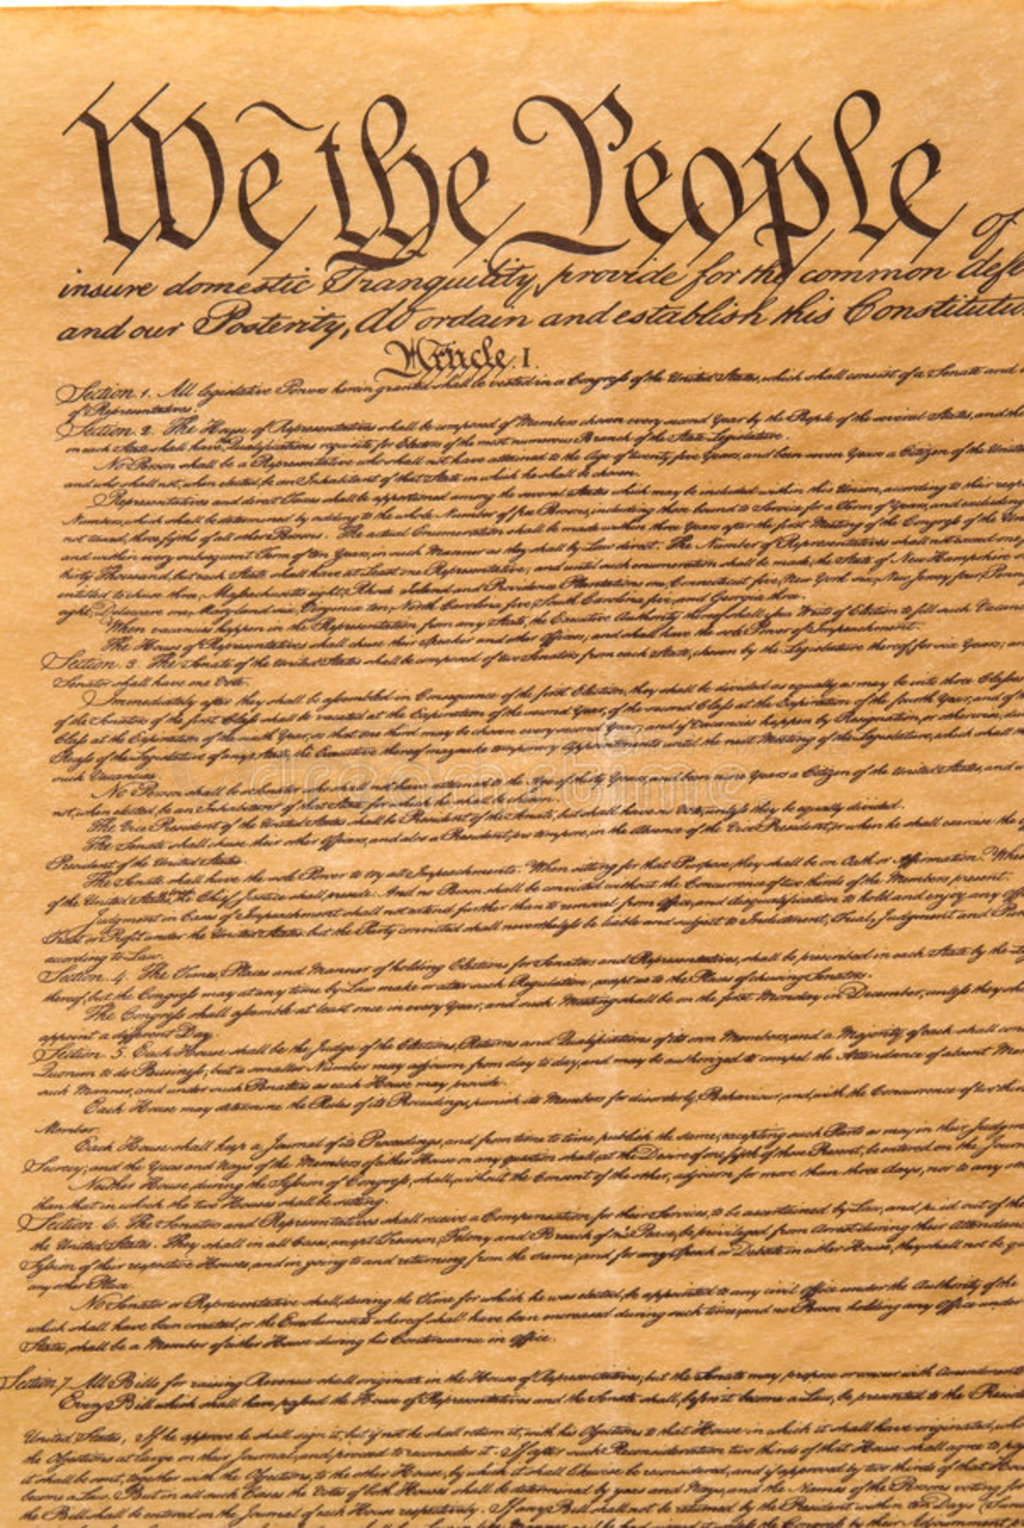 We the People of
insure domestic Tranquility, provide for the common defe
and our Posterity, do ordain and establish this Constitutio
Article. I.
Section. 1. All legislative Powers herein granted shall be vested in a Congress of the United States, which shall consist of a Senate and
of Representatives.
Section. 2. The House of Representatives shall be composed of Members chosen every second Year by the People of the several States, and the
in each State shall have the Qualifications requisite for Electors of the most numerous Branch of the State Legislature.
No Person shall be a Representative who shall not have attained to the Age of twenty five Years, and been seven Years a Citizen of the United
and who shall not, when elected, be an Inhabitant of that State in which he shall be chosen.
Representatives and direct Taxes shall be apportioned among the several States which may be included within this Union, according to their resp
Numbers, which shall be determined by adding to the whole Number of free Persons, including those bound to Service for a Term of Years, and excluding
not taxed, three fifths of all other Persons. The actual Enumeration shall be made within three Years after the first Meeting of the Congress of the Un
and within every subsequent Term of ten Years, in such Manner as they shall by Law direct. The Number of Representatives shall not exceed one
thirty Thousand, but each State shall have at Least one Representative; and until such enumeration shall be made, the State of New Hampshire
entitled to chuse three, Massachusetts eight, Rhode Island and Providence Plantations one, Connecticut five, New York six, New Jersey four, Penn
eight, Delaware one, Maryland six, Virginia ten, North Carolina five, South Carolina five, and Georgia three.
When vacancies happen in the Representation from any State, the Executive Authority thereof shall issue Writs of Election to fill such Vacanc
The House of Representatives shall chuse their Speaker and other Officers; and shall have the sole Power of Impeachment.
Section. 3. The Senate of the United States shall be composed of two Senators from each State, chosen by the Legislature thereof, for six Years; an
Senator shall have one Vote.
Immediately after they shall be assembled in Consequence of the first Election, they shall be divided as equally as may be into three Classes
of the Senators of the first Class shall be vacated at the Expiration of the second Year, of the second Class at the Expiration of the fourth Year, and of
Class at the Expiration of the sixth Year, so that one third may be chosen every second Year; and if Vacancies happen by Resignation, or otherwise, du
Recess of the Legislature of any State, the Executive thereof may make temporary Appointments until the next Meeting of the Legislature, which shall
such Vacancies.
No Person shall be a Senator who shall not have attained to the Age of thirty Years, and been nine Years a Citizen of the United States, and
not, when elected, be an Inhabitant of that State for which he shall be chosen.
The Vice President of the United States shall be President of the Senate, but shall have no Vote, unless they be equally divided.
The Senate shall chuse their other Officers, and also a President pro tempore, in the Absence of the Vice President, or when he shall exercise the
President of the United States.
The Senate shall have the sole Power to try all Impeachments. When sitting for that Purpose, they shall be on Oath or Affirmation. When
of the United States, the Chief Justice shall preside: And no Person shall be convicted without the Concurrence of two thirds of the Members present.
Judgment in Cases of Impeachment shall not extend further than to removal from Office, and disqualification to hold and enjoy any
Trust or Profit under the United States: but the Party convicted shall nevertheless be liable and subject to Indictment, Trial, Judgment and
according to Law.
Section. 4. The Times, Places and Manner of holding Elections for Senators and Representatives, shall be prescribed in each State by the
thereof; but the Congress may at any time by Law make or alter such Regulations, except as to the Places of chusing Senators.
The Congress shall assemble at least once in every Year, and such Meeting shall be on the first Monday in December, unless they
appoint a different Day.
Section. 5. Each House shall be the Judge of the Elections, Returns and Qualifications of its own Members, and a Majority of each shall con
Quorum to do Business; but a smaller Number may adjourn from day to day, and may be authorized to compel the Attendance of absent Mem
such Manner, and under such Penalties as each House may provide.
Each House may determine the Rules of its Proceedings, punish its Members for disorderly Behaviour, and, with the Concurrence of two
Member.
Each House shall keep a Journal of its Proceedings, and from time to time publish the same, excepting such Parts as may in their Judgm
Secrecy; and the Yeas and Nays of the Members of either House on any question shall, at the Desire of one fifth of those Present, be entered on the Journ
Neither House, during the Session of Congress, shall, without the Consent of the other, adjourn for more than three days, nor to any
than that in which the two Houses shall be sitting.
Section. 6. The Senators and Representatives shall receive a Compensation for their Services, to be ascertained by Law, and paid out of the
the United States. They shall in all Cases, except Treason, Felony and Breach of the Peace, be privileged from Arrest during their Attendance
Session of their respective Houses, and in going to and returning from the same; and for any Speech or Debate in either House, they shall not be
any other Place.
No Senator or Representative shall, during the Time for which he was elected, be appointed to any civil Office under the Authority of the
which shall have been created, or the Emoluments whereof shall have been encreased during such time; and no Person holding any Office under
States, shall be a Member of either House during his Continuance in Office.
Section. 7. All Bills for raising Revenue shall originate in the House of Representatives; but the Senate may propose or concur with Amendments
Every Bill which shall have passed the House of Representatives and the Senate, shall, before it become a Law, be presented to the
United States; If he approve he shall sign it, but if not he shall return it, with his Objections to that House in which it shall have originated,
the Objections at large on their Journal, and proceed to reconsider it. If after such Reconsideration two thirds of that House shall agree to
it shall be sent, together with the Objections, to the other House, by which it shall likewise be reconsidered, and if approved by two thirds of that
become a Law. But in all such Cases the Votes of both Houses shall be determined by yeas and Nays, and the Names of the Persons voting for
the Bill shall be entered on the Journal of each House respectively. If any Bill shall not be returned by the President within ten Days
dreamstime